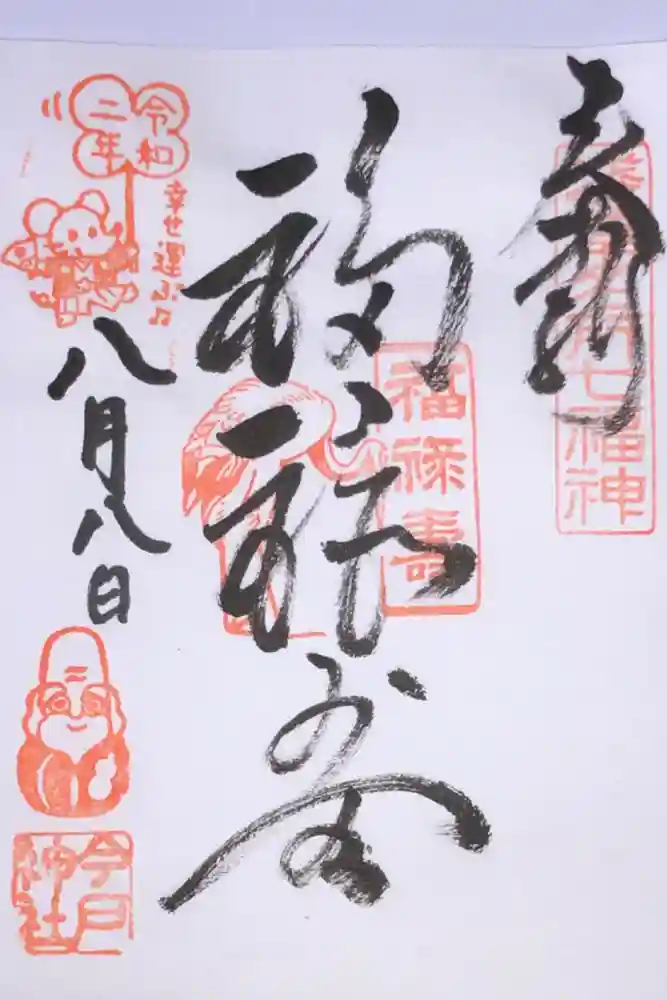 奉拝
浅草名所七福神
福禄寿
福禄寿
令和
二年
幸せ運ぶ♫
八月八日
今戸
神社